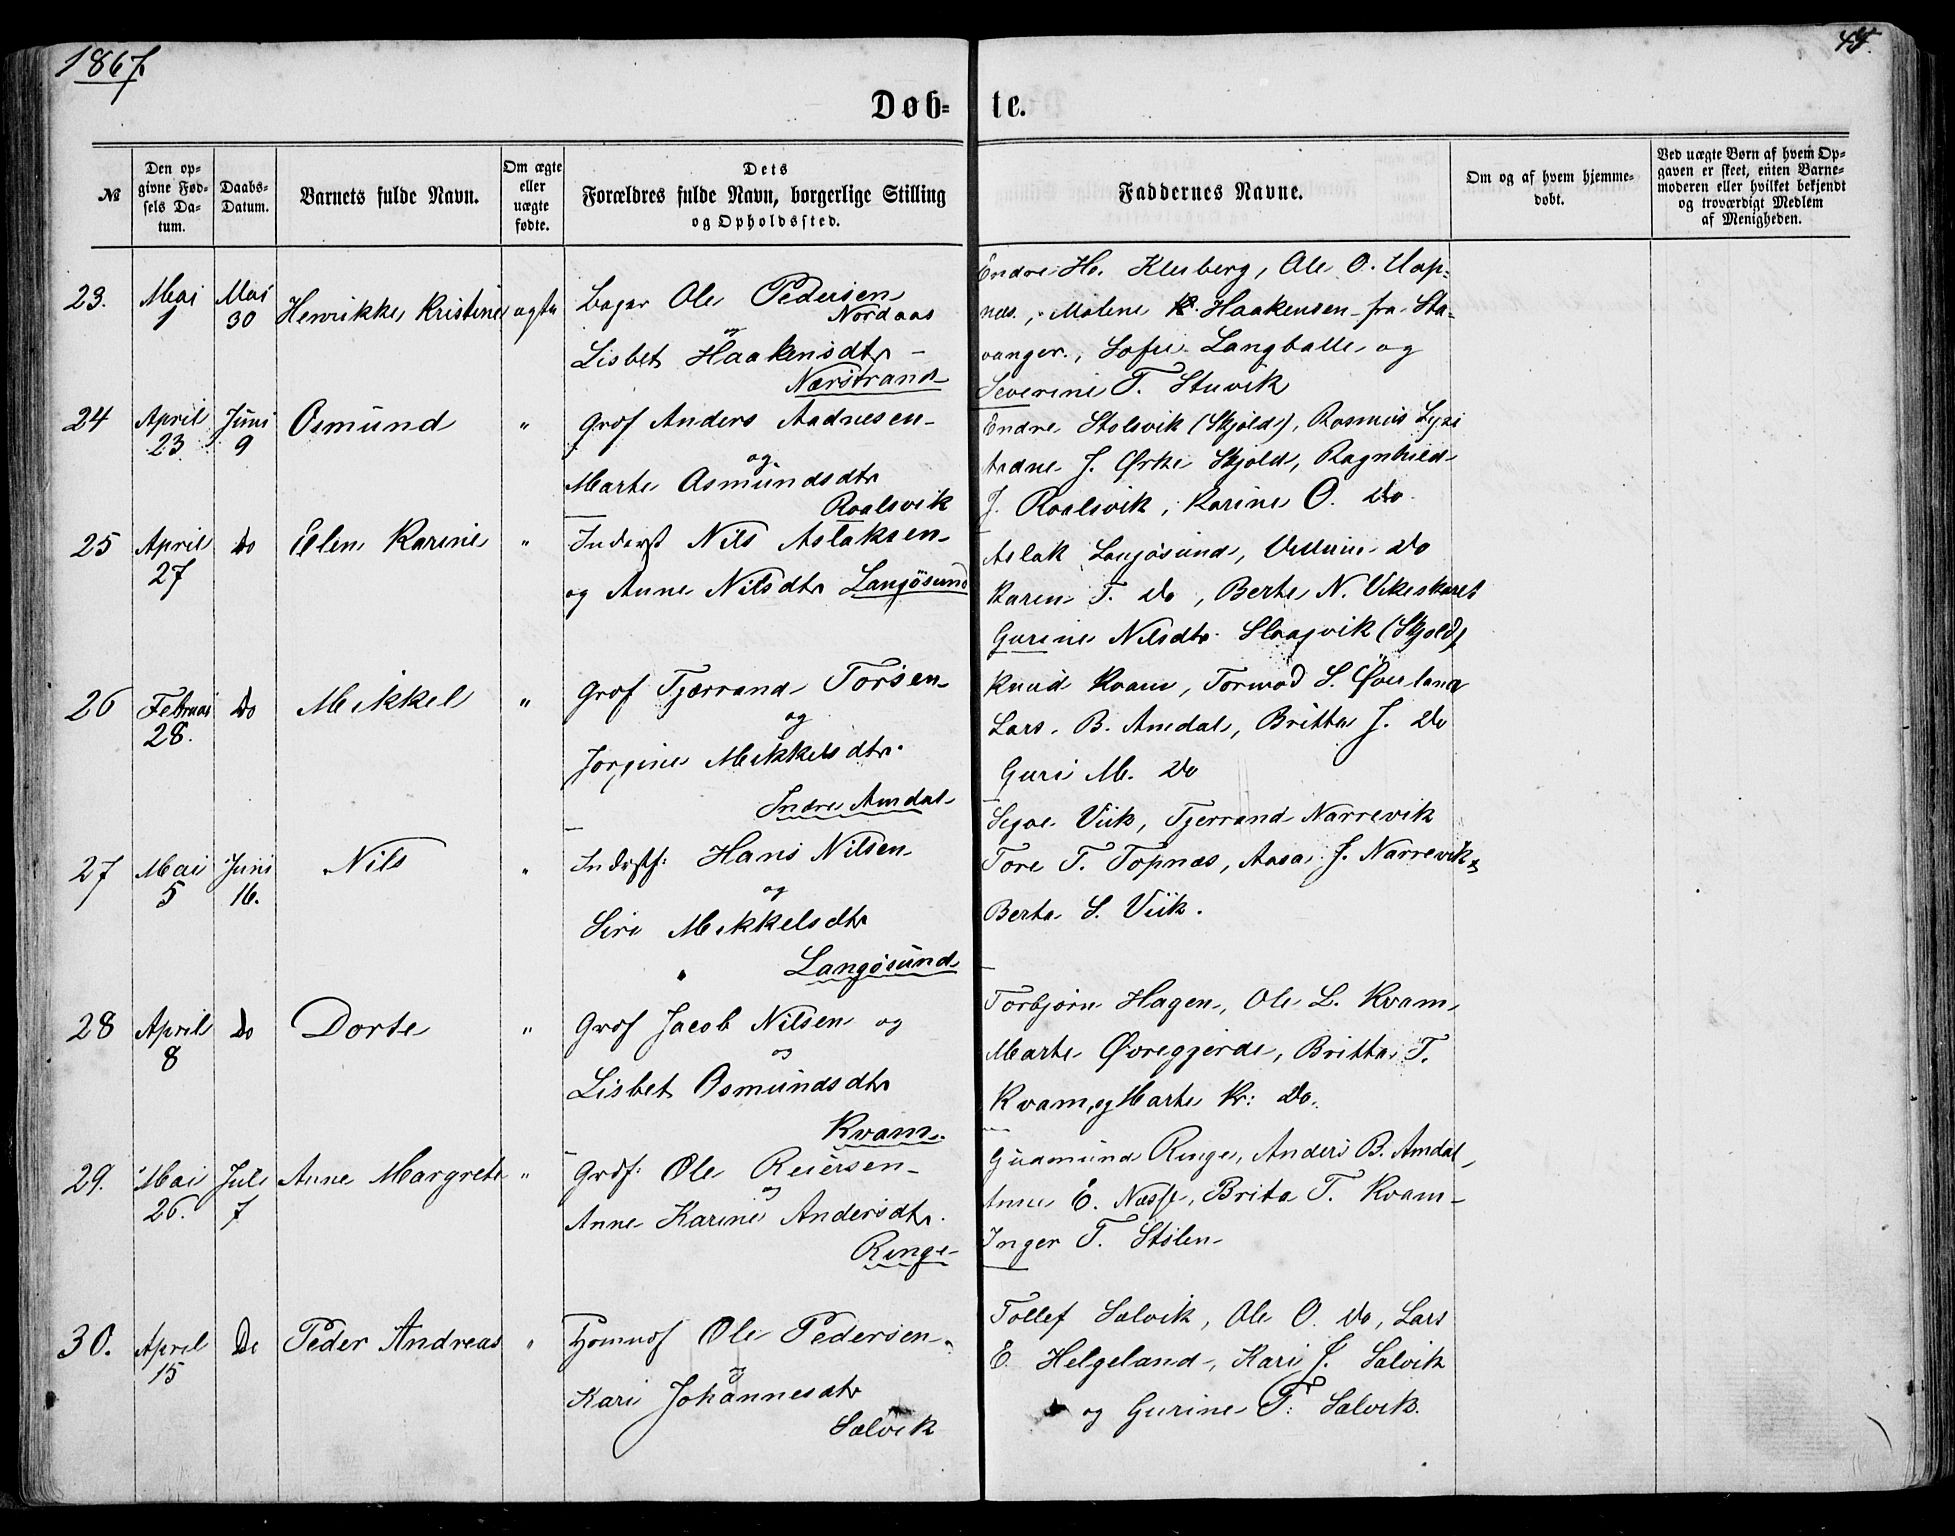 1867.
44.
Døb-
te.
№
Den op-
givne Fød-
sels Da-
tum.
Daabs-
Datum.
Barnets fulde Navn.
Om ægte
eller
uægte
fødte.
Dets
Forældres fulde Navn, borgerlige Stilling
og Opholdssted.
Faddernes Navne.
Om og af hvem hjemme-
døbt.
Ved uægte Børn af hvem Op-
gaven er skeet, enten Barne-
moderen eller hvilket bekjendt
og troværdigt Medlem
af Menigheden.
23.
Mai
1
Mai
30
Henrikke Kristine
ægte
Bager Ole Pedersen
Nordaas
og
Lisbet Haakensdtr -
Nærstrand
Endre H. Klusberg, Ole O.
Malene Haakensen fra Sta-
vanger., Sofie Langballe og
Severine T. Stuvik
24
April
23
Juni
9
Osmund
"
Grdf Anders Aadnesen
og
Marte Asmundsdtr
Roalsvik
Endre Stolsvik (Skjold), Rasmus
Aadne J. Ørke Skjold, Ragnhild
J. Roalsvik, Karine O. Do.
25
April
27
Do
Elen Karine
"
Inderst Nils Aslaksen
og Anne Nilsdtr Langøsund
Aslak Langøsund, Do
Karen T. Do, Berte N. Vikeskaret
Gurine Nilsdtr. (Skjold)
26
Februar
28.
Do
Mikkel
"
Grdf Tjærrand Torsen
og
Jorgine Mikkelsdtr.
Indre Amdal
Knud Kvam, Tormod S. Øverland
Lars B. Amdal, Britta J. Do
Guri M. Do
27
Mai
5
Juni
16.
Nils
"
Indrstf: Hans Nilsen
og
Siri Mikkelsdtr
" Langøsund
Segve Viik, Tjerrand Narrevik
Tore T. Topnæs, Aasa J. Narrevik
Berta S. Viik.
28
April
8
Do
Dorte
"
Grdf Jacob Nilsen og
og
Lisbet Osmundsdtr
Kvam.
Torbjørn Hagen, Ole L. Kvam
Marte Øvregjerde, Britta T.
Kvam, og Marte Kr: Do.
29.
Mai
26.
Juli
7
Anne Margrete
"
Grdf: Ole Reiersen
og
Anne Karine Andersdtr.
Ringe
Gudmund Ringe, Anders B. Amdal
Anne E. Næsse, Brita T. Kvam
Inger T. Stølen
30.
April
15
Do
Peder Andreas
"
Ole Pedersen
og
Kari Johannesdtr
Sælvik
Tollef Sælvik, Ole O. Do, Lars
E. Helgeland, Kari J. Salvik
og Gurine T: Salvik.